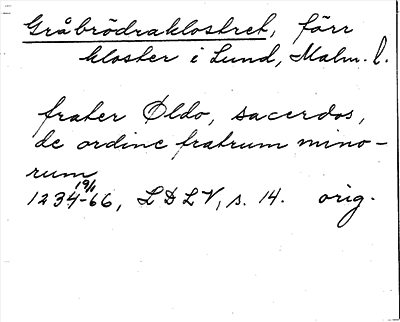 Gråbrödraklostret, förr
kloster i Lund, Malm. l.
frater Øldo, sacerdos,
de ordine fratrum mino-
rum
1234-19/1 66, L D L V, s. 14. orig.